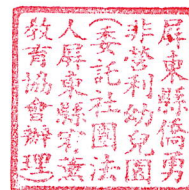 屏東縣僑勇
非營利幼兒園
（委託社團法
人屏東縣家蓁
教育協會辦理）